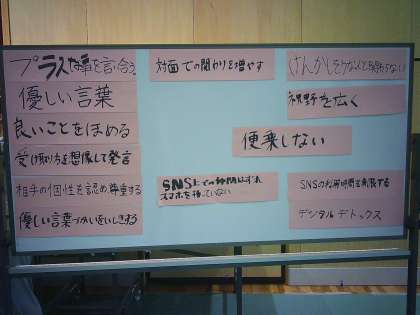 プラスな事を言い合う
優しい言葉
良いことをほめる
受け取り方を想像して発言
相手の個性を認め尊重する
優しい言葉づかいをいしきする
対面での関わりを増やす
SNS上での
スマホを持っていない
けんかしそうな人と関わらない
視野を広く
便乗しない
SNSの利用時間を制限する
デジタルデトックス